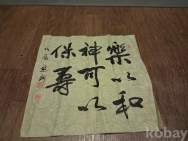 樂以和
神可以
保壽
kobay